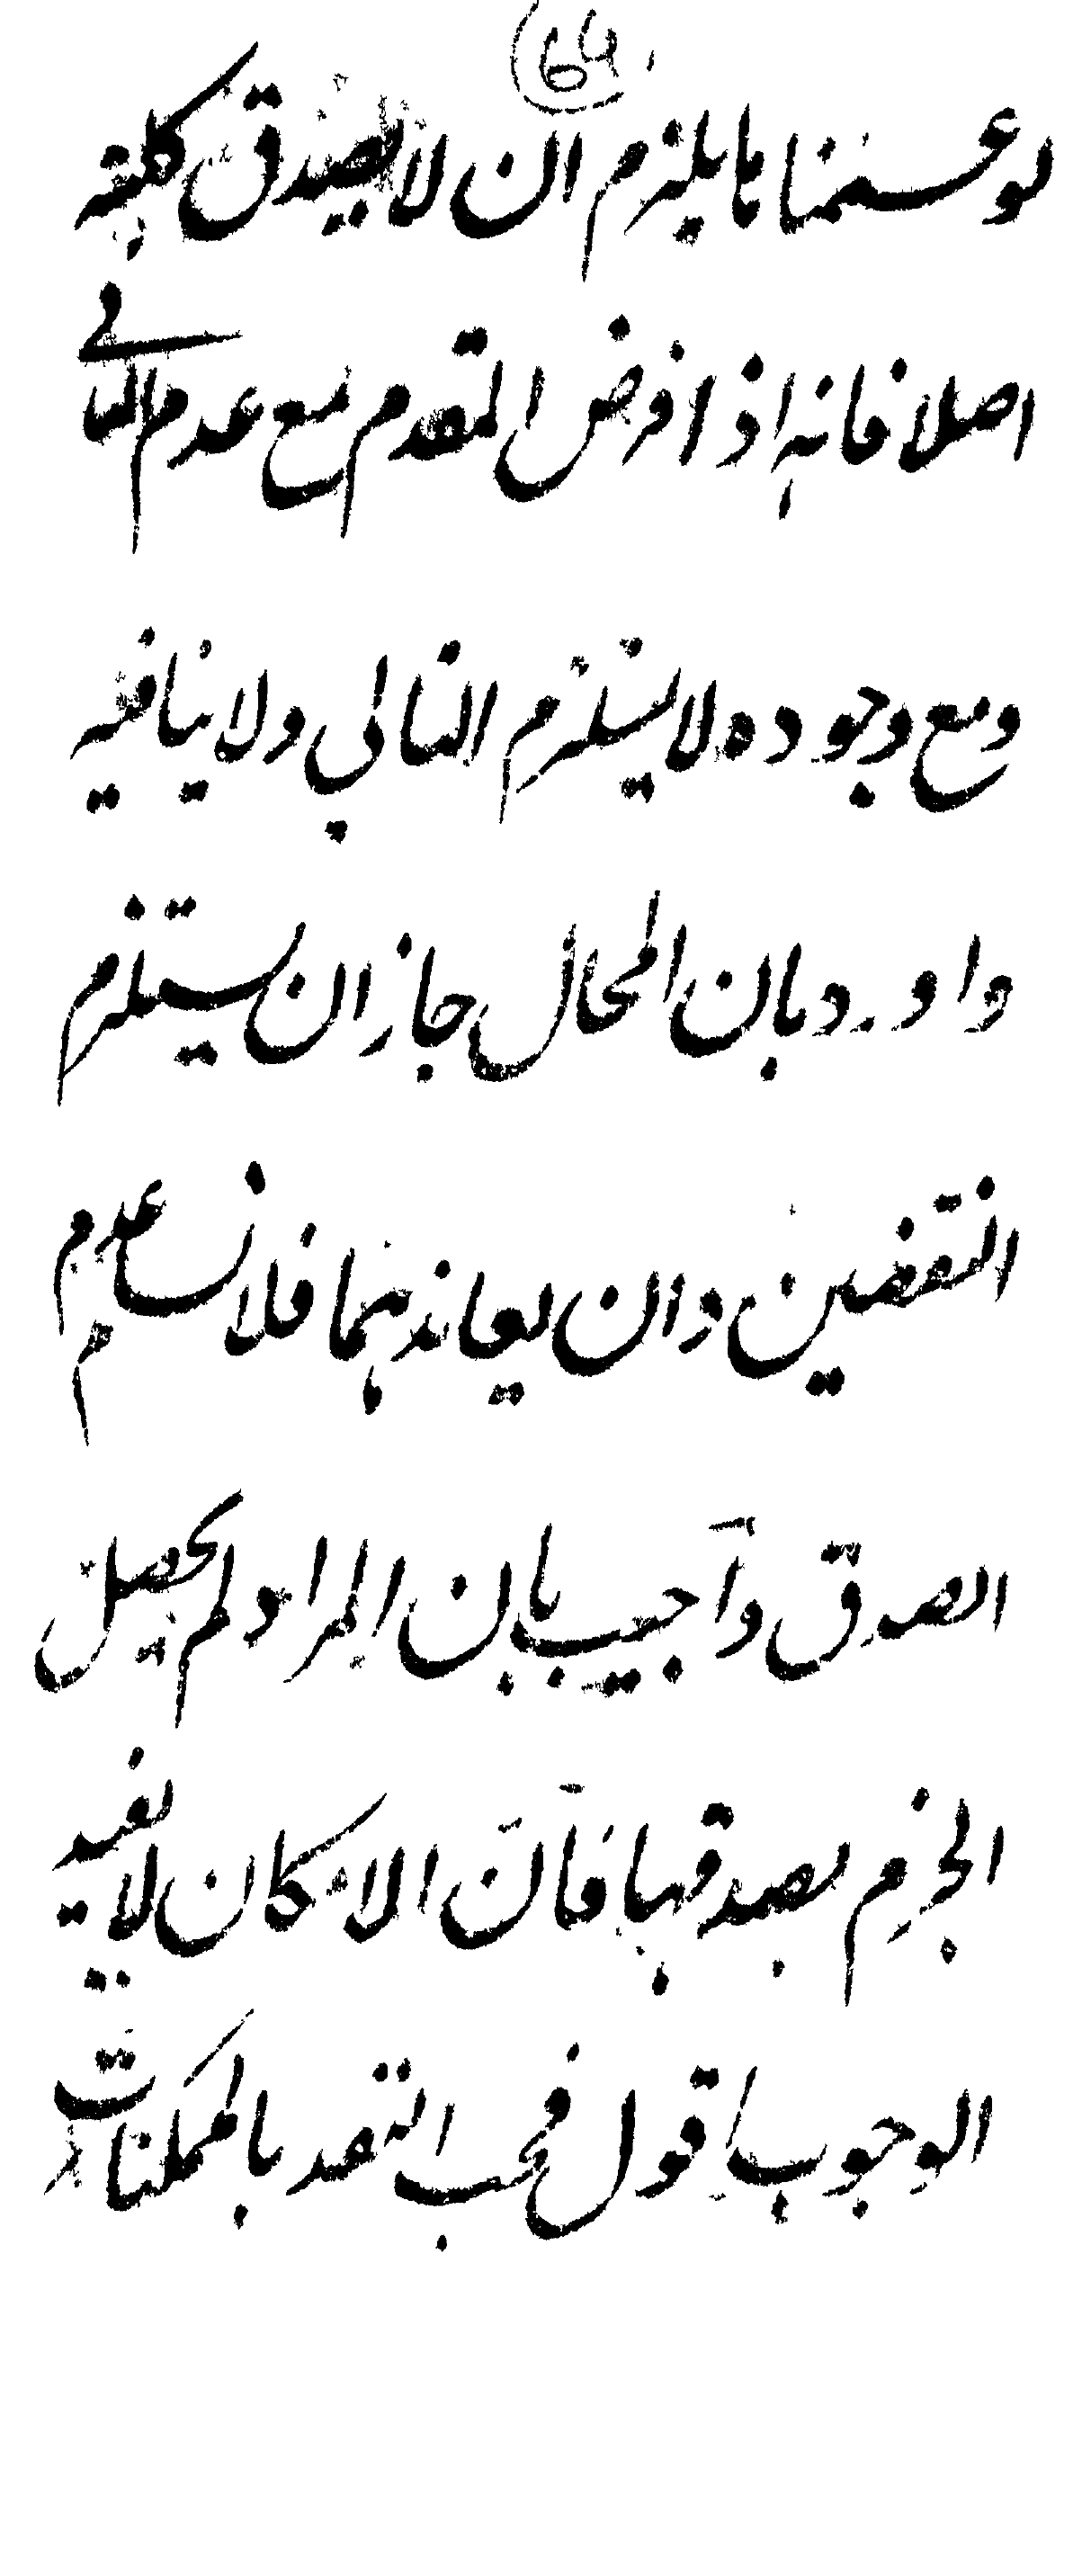 64
لو عممنا ما يلزم ان لا يصدق كلية
اصلا فانه اذا فرض المقدم مع عدم التالي
ومع وجوده لا يستلزم التالي ولا ينافيه
واورد بان المحال جاز ان يستلزم
النقضين وان يعاندهما فلا نسلم عدم
الصدق وأجيب بان المراد لم يحصل
الجزم بصدقها فان الامكان لا يفيد
الوجوب اقول فحب التقد بالممكنات